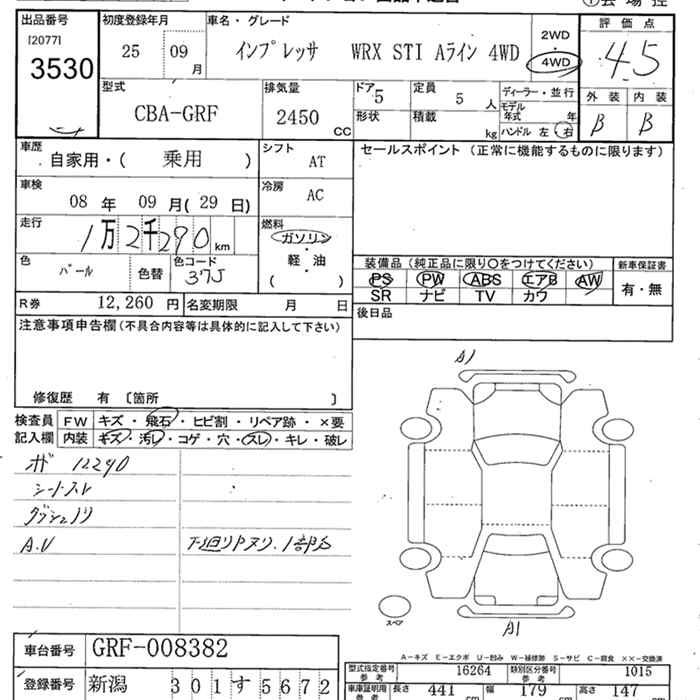 出品番号 初度登録年月 車名・グレード 評価点
[2077] 25 09月 インプレッサ WRX STI Aライン 4WD 2WD・4WD 4.5
3530
型式 排気量 ドア 5 定員 5人 ディーラー・並行 外装 内装
CBA-GRF 2450cc 形状 積載 kg モデル年式 年 B B
ハンドル 左・右
車歴 自家用・( 乗用 ) シフト AT セールスポイント (正常に機能するものに限ります)
車検 08年 09月(29日) 冷房 AC
走行 1万2千290km 燃料 ガソリン・軽・油 ( )
色 パール 色替 色コード 37J
装備品 (純正品に限り〇をつけてください) 新車保証書
PS PW ABS エアB AW 有・無
SR ナビ TV カワ
R券 12,260円 名変期限 月 日 後日品
注意事項申告欄(不具合内容等は具体的に記入して下さい)
修復歴 有 〔箇所 〕
検査員記入欄 FW キズ・飛石・ヒビ割・リペア跡・×要
内装 キズ・汚レ・コゲ・穴・スレ・キレ・破レ
12290
シートスレ
A.V
下廻りPヌリ.1部分
A1
A1
スペア
A-キズ E-エクボ U-凹み W-補修跡 S-サビ C-腐食 ××-交換済
車台番号 GRF-008382
型式指定番号 参考 16264 類別区分番号 参考 1015
登録番号 新潟 301 す 5672
車庫証明用 参考 長さ 441 幅 179 高さ 147